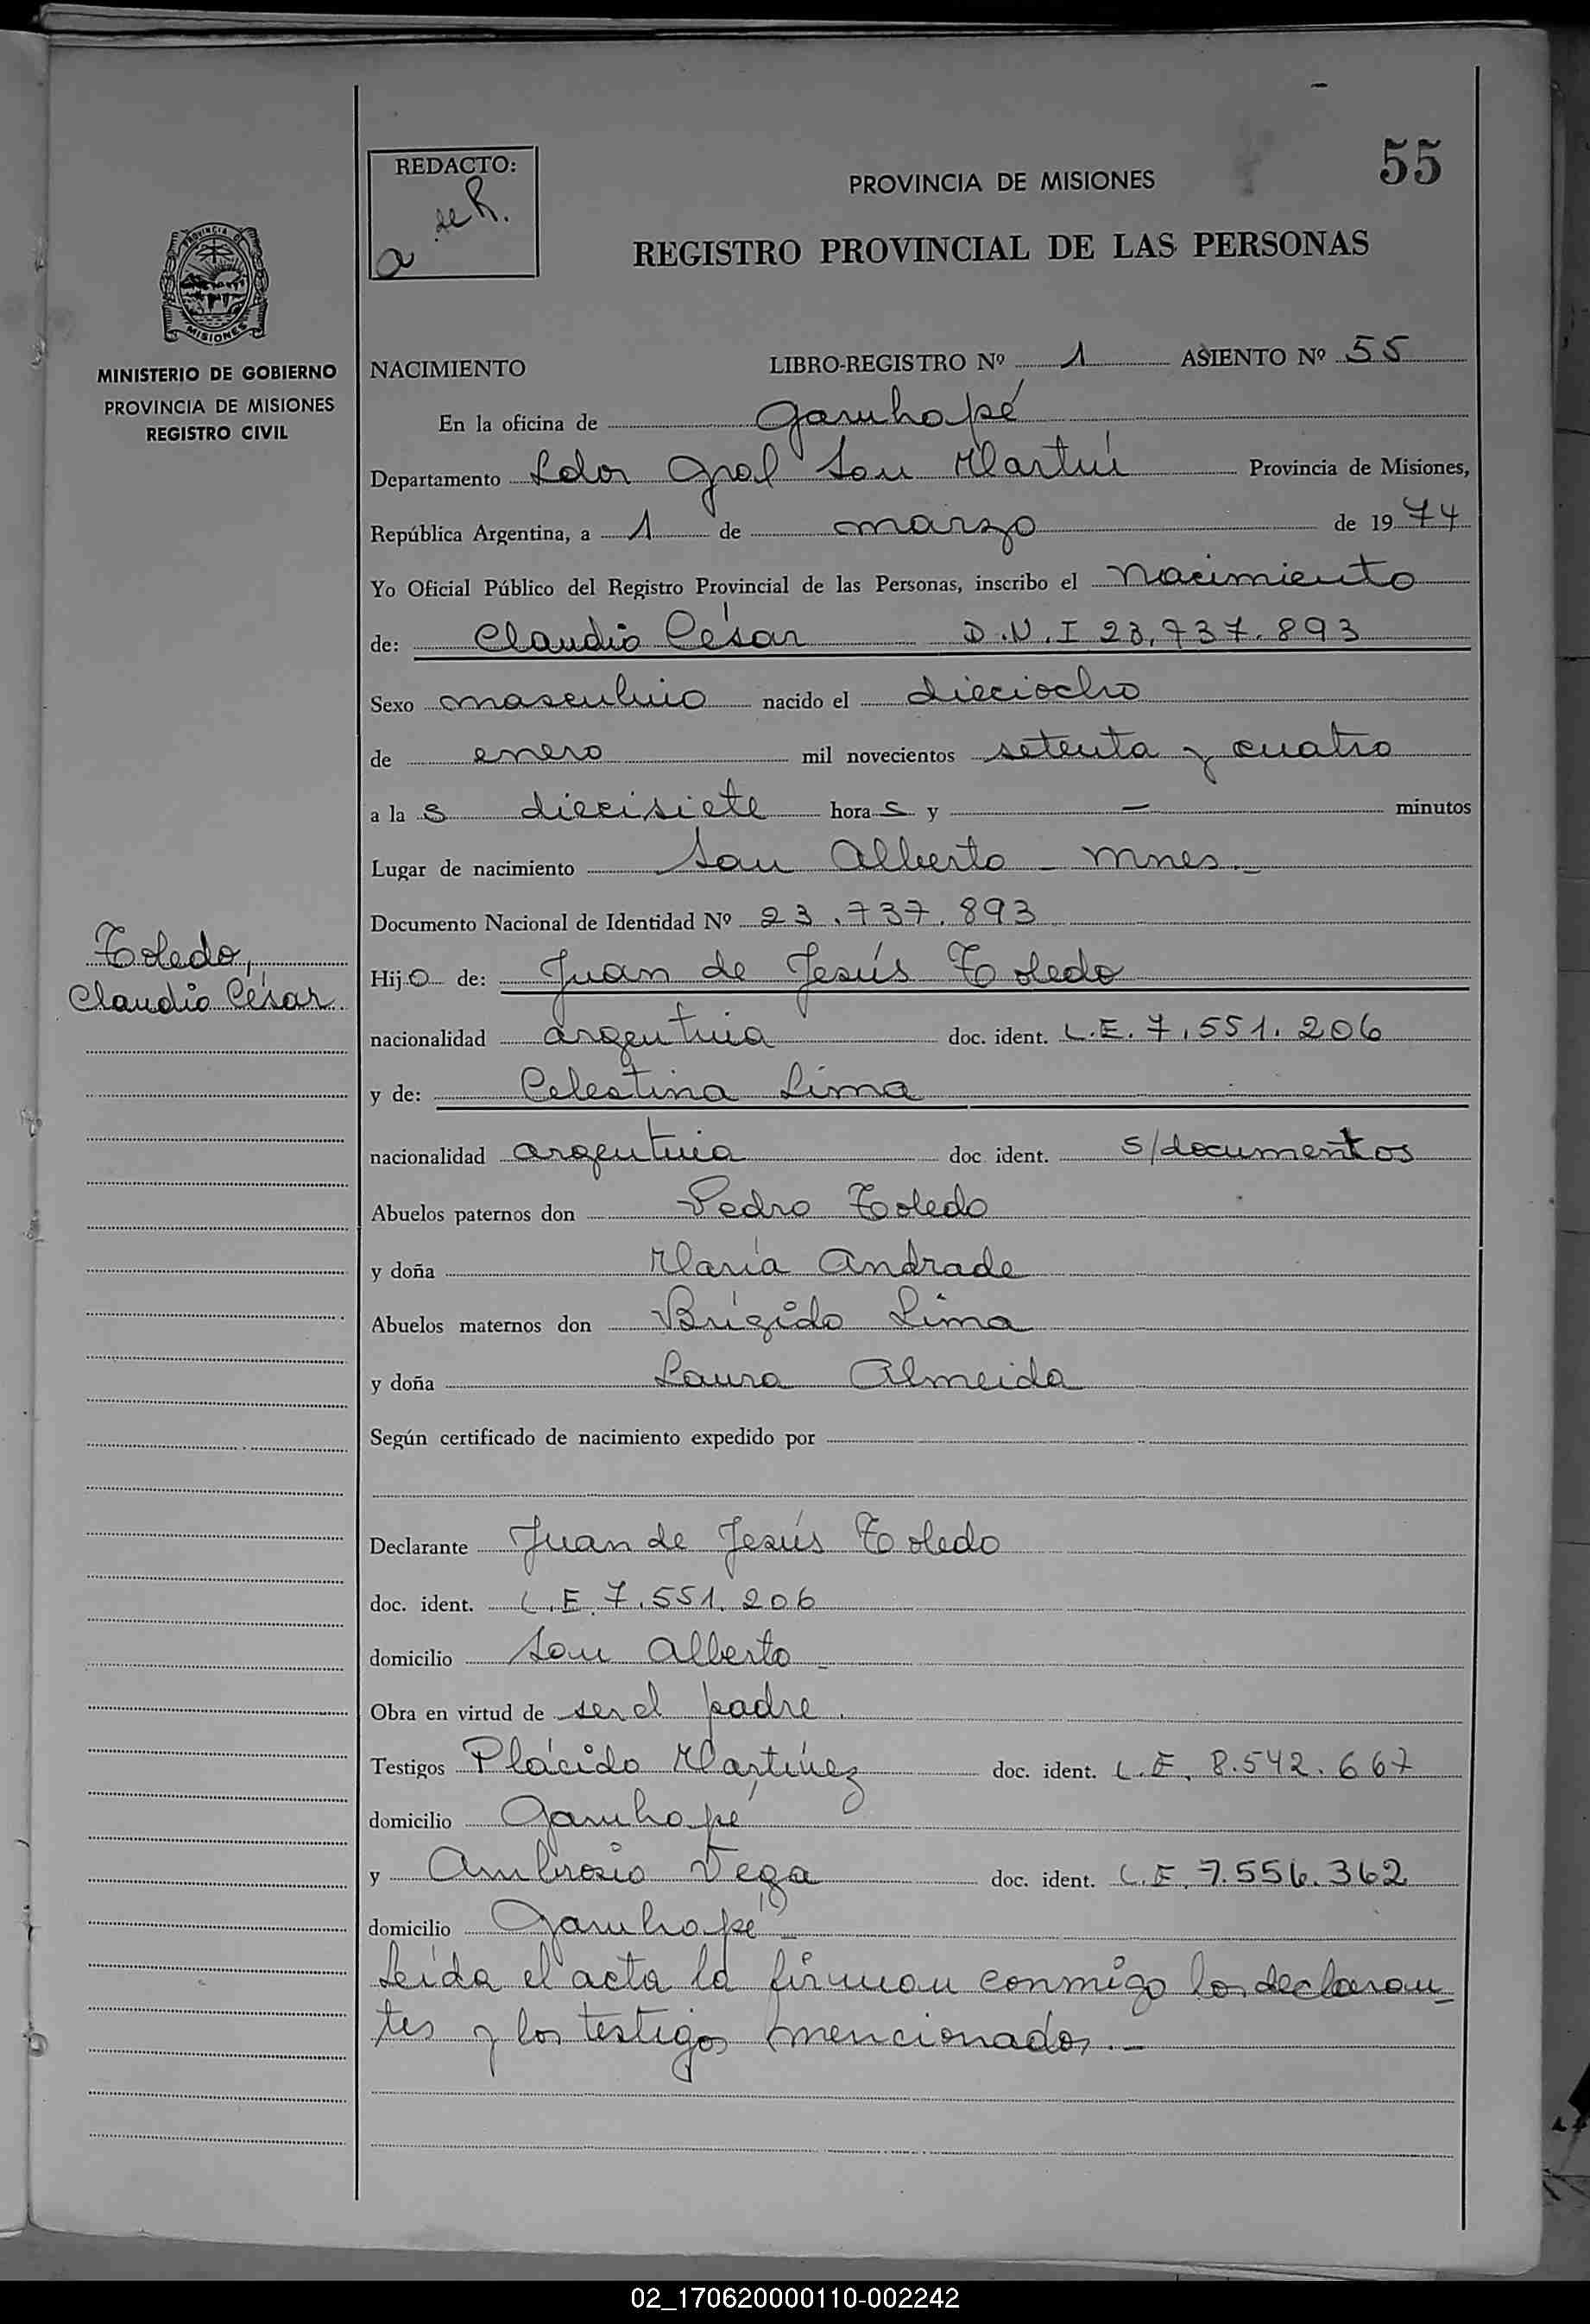 55
REDACTO:
a de R.
PROVINCIA DE MISIONES
REGISTRO PROVINCIAL DE LAS PERSONAS
PROVINCIA DE
MISIONES
MINISTERIO DE GOBIERNO
PROVINCIA DE MISIONES
REGISTRO CIVIL
NACIMIENTO LIBRO-REGISTRO Nº 1 ASIENTO Nº 55
En la oficina de Garuhapé
Departamento Ldor Gral San Martín Provincia de Misiones,
República Argentina, a 1 de marzo de 1974
Yo Oficial Público del Registro Provincial de las Personas, inscribo el Nacimiento
de: Claudio César D.N.I 23.737.893
Sexo masculino nacido el dieciocho
de enero mil novecientos setenta y cuatro
a la s diecisiete hora s y — minutos
Lugar de nacimiento San Alberto - Mnes.-
Documento Nacional de Identidad Nº 23.737.893
Toledo,
Claudio César.
Hijo de: Juan de Jesús Toledo
nacionalidad argentina doc. ident. L.E. 7.551.206
y de: Celestina Lima
nacionalidad argentina doc. ident. s/documentos
Abuelos paternos don Pedro Toledo
y doña María Andrade
Abuelos maternos don Brígido Lima
y doña Laura Almeida
Según certificado de nacimiento expedido por
Declarante Juan de Jesús Toledo
doc. ident. L.E. 7.551.206
domicilio San Alberto -
Obra en virtud de ser el padre.
Testigos Plácido Martínez doc. ident. L.E. 8.542.667
domicilio Garuhapé
y Ambrosio Vega doc. ident. L.E. 7.556.362
domicilio Garuhapé -
Leída el acta la firman conmigo los declaran-
tes y los testigos mencionados.-
02_170620000110-002242